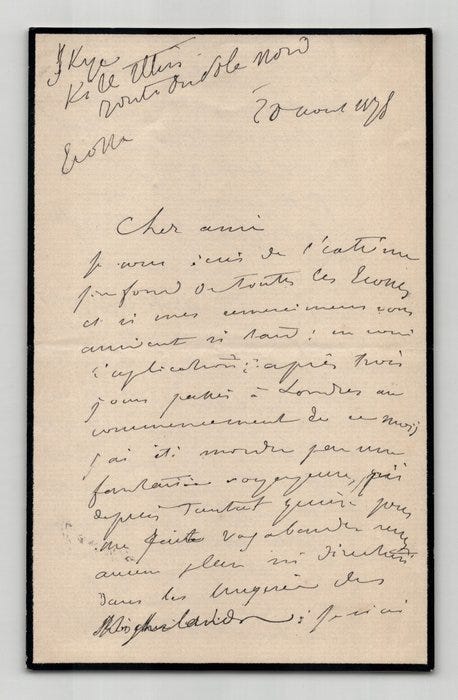 Skye
Kill
route du Pole Nord
20 aout 1878
Ecosse
Cher ami
Je vous écris de l'extrême
fond de toutes les Ecosses
et si mes remerciements vous
arrivent si tard : en voici
l'explication : après trois
jours passés à Londres au
commencement de ce mois
j'ai été mordu par une
fantaisie voyageuse, qui
depuis tantôt quinze jours
me fait vagabonder sans
aucun plan ni direction
dans les des
Highlands : je suis